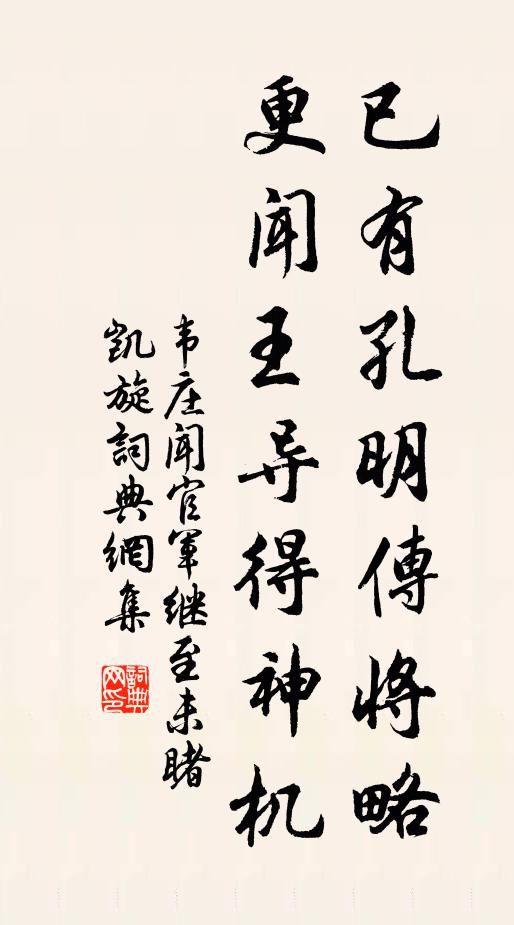 已有孔明傳將略
更闻王导得神机
韦庄闻官軍继至未睹
凯旋詞典網集
詞典网印